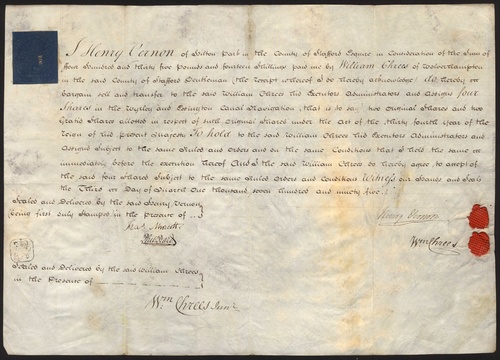 I Henry Vernon of Hilton Park in the County of Stafford Esquire in Consideration of the Sum of
four hundred and thirty five Pounds and fourteen Shillings paid me by William Chrees of Wolverhampton
in the said County of Stafford Gentleman (the receipt whereof I do hereby acknowledge) Do hereby
bargain sell and transfer to the said William Chrees his Executors Administrators and Assigns four
Shares in the Wyrley and Essington Canal Navigation, that is to say, two Original Shares and two
Gratis Shares allotted in respect of such Original Shares under the Act of the thirty fourth Year of the
Reign of his present Majesty To hold to the said William Chrees his Executors Administrators and
Assigns Subject to the same Rules and Orders and on the same Conditions that I held the same
immediately before the execution hereof And I the said William Chrees do hereby agree to accept of
the said four Shares Subject to the same Rules Orders and Conditions Witness our Hands and Seals
the Day of March One thousand seven hundred and ninety five
Sealed and Delivered by the said Henry Vernon
being first duly Stamped in the Presence of
Henry Vernon
Wm Chrees
Sealed and Delivered by the said William Chrees
in the Presence of
Wm Chrees Junr